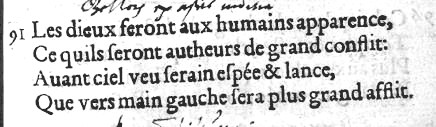 91 Les dieux feront aux humains apparence,
Ce quils ſeront autheurs de grand conflit:
Auant ciel veu ſerain eſpée & lance,
Que vers main gauche ſera plus grand afflit.